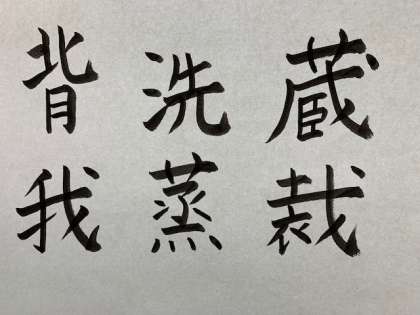 蔵裁
洗蒸
背我